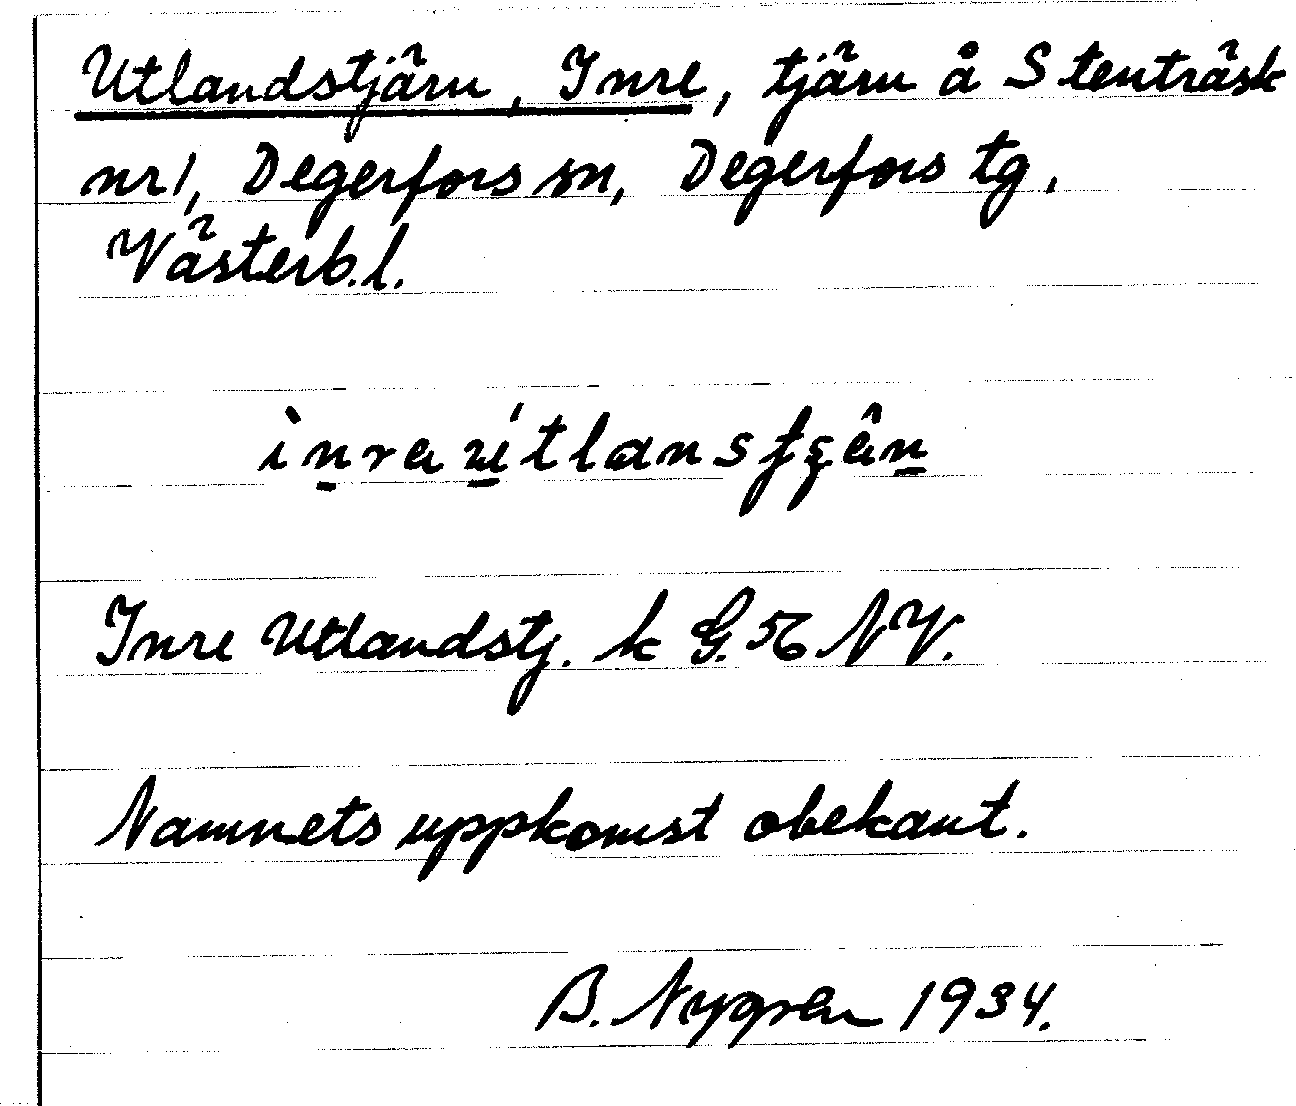 Utlandstjärn, Inre, tjärn å Stenträsk
nr 1, Degerfors sn, Degerfors tg,
Västerb. l.
Inre Utlandstj. k G. 56 NV.
Namnets uppkomst obekant.
B. Nygren 1934.